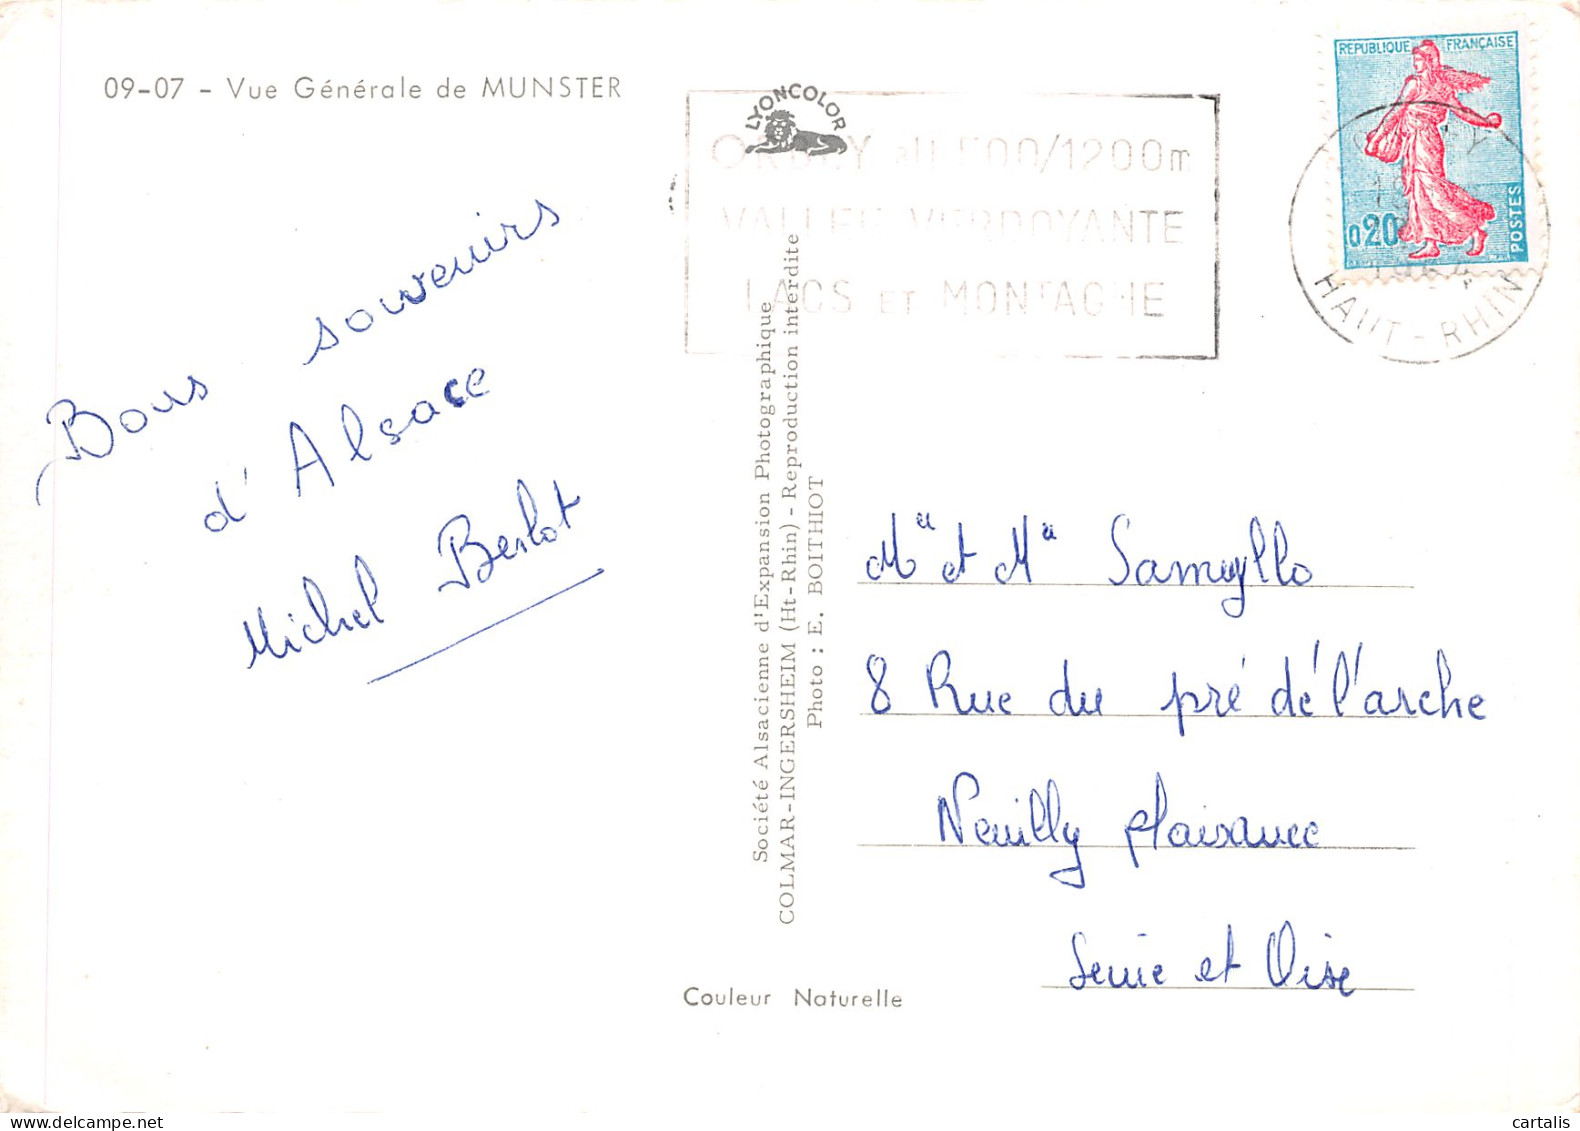 09-07 - Vue Générale de MUNSTER
Bons souvenirs
d'Alsace
Michel Berlot
LYONCOLOR
ALT 500/1200m
VALLEE VERDOYANTE
LACS ET MONTAGNE
REPUBLIQUE FRANÇAISE
0,20
POSTES
1964
HAUT-RHIN
Société Alsacienne d'Expansion Photographique
COLMAR-INGERSHEIM (Ht-Rhin) - Reproduction interdite
Photo : E. BOITHIOT
Couleur Naturelle
et Samyllo
8 Rue du pré de l'arche
Neuilly plaisance
Seine et Oise
cartalis